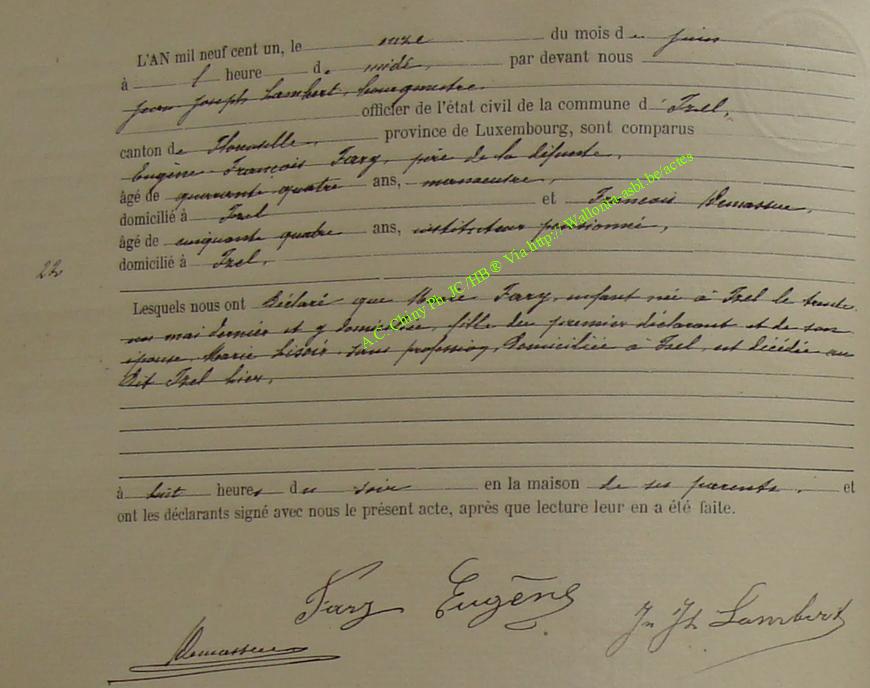 L'AN mil neuf cent un, le onze du mois de juin
à 1 heure de midi, par devant nous
Jean Joseph Lambert, bourgmestre
officier de l'état civil de la commune d'Izel,
canton de Florenville, province de Luxembourg, sont comparus
Eugène François Farz, père de la défunte,
âgé de quarante quatre ans, manoeuvre,
domicilié à Izel et François Demasseu,
âgé de cinquante quatre ans, instituteur pensionné,
domicilié à Izel,
22
Lesquels nous ont déclaré que Marie Farz, enfant née à Izel le trente
un mai dernier et y domiciliée, fille du premier déclarant et de son
épouse, Marie Lisoir, sans profession, domiciliée à Izel, est décédée au
dit Izel hier,
à huit heures du soir en la maison de ses parents, et
ont les déclarants signé avec nous le présent acte, après que lecture leur en a été faite.
Farz Eugène
Jn Jh Lambert
Demasseu
A.C. Chiny Ph. JC/HB® Via http://Wallonia-asbl.be/actes